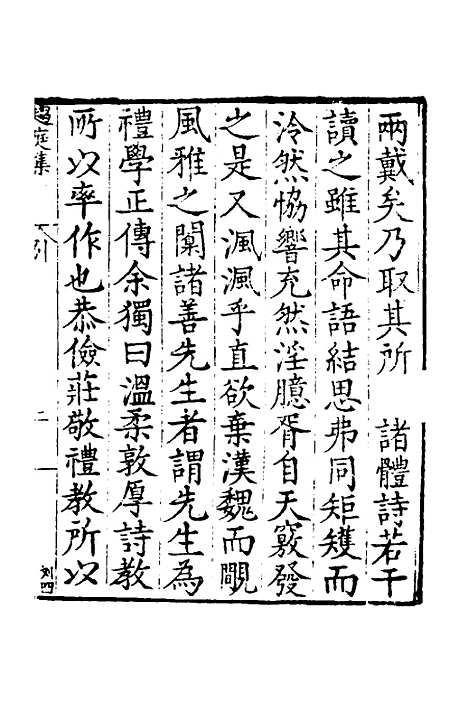 兩戴矣乃取其所　諸體詩若干
讀之雖其命語結思弗同矩矱而
泠然恊響充然淫臆胥自天竅發
之是又渢渢乎直欲棄漢魏而覸
風雅之閫諸善先生者謂先生為
禮學正傳余獨曰溫柔敦厚詩教
所以率作也恭儉莊敬禮教所以
趨庭集
二
刘四